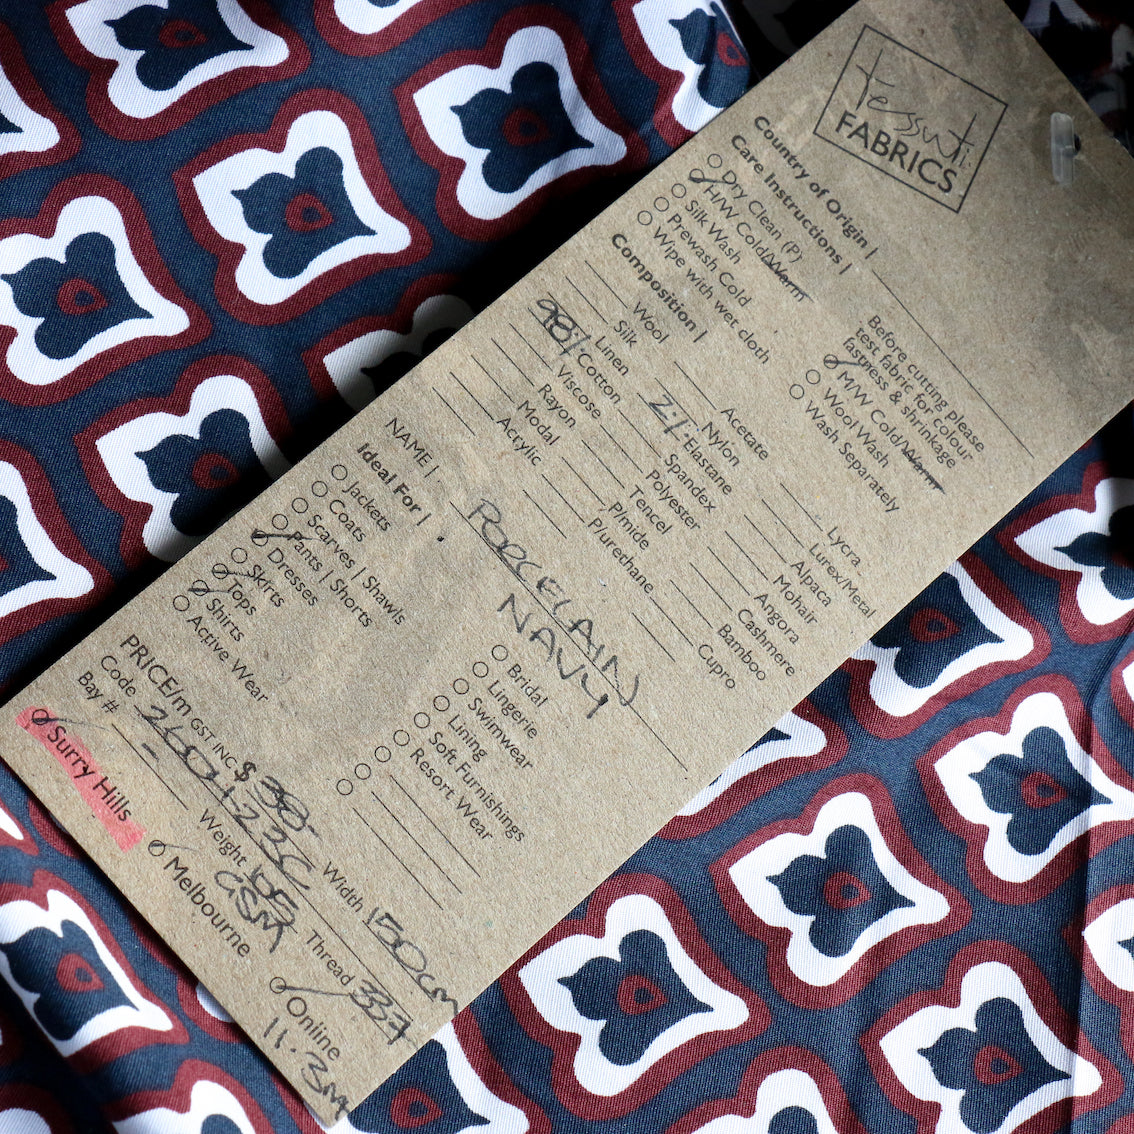 Tessuti
FABRICS
Country of Origin |
Care Instructions |
Dry Clean (P)
H/W Cold/Warm
Silk Wash
Prewash Cold
Wipe with wet cloth
Before cutting please
test fabric for colour
fastness & shrinkage
M/W Cold/Warm
Wool Wash
Wash Separately
Composition |
Wool
Silk
Linen
98% Cotton
Viscose
Rayon
Modal
Acrylic
Acetate
Nylon
2% Elastane
Spandex
Polyester
Tencel
P/mide
P/urethane
Lycra
Lurex/Metal
Alpaca
Mohair
Angora
Cashmere
Bamboo
Cupro
NAME |
PORCELAIN
NAVY
Ideal For |
Jackets
Coats
Scarves | Shawls
Pants | Shorts
Dresses
Skirts
Tops
Shirts
Active Wear
Bridal
Lingerie
Swimwear
Lining
Soft Furnishings
Resort Wear
PRICE/m GST INC $38-
Code 260123C Width 150cm
Bay # - Weight 105 GSM Thread 337
Surry Hills
Melbourne
Online
11.3m